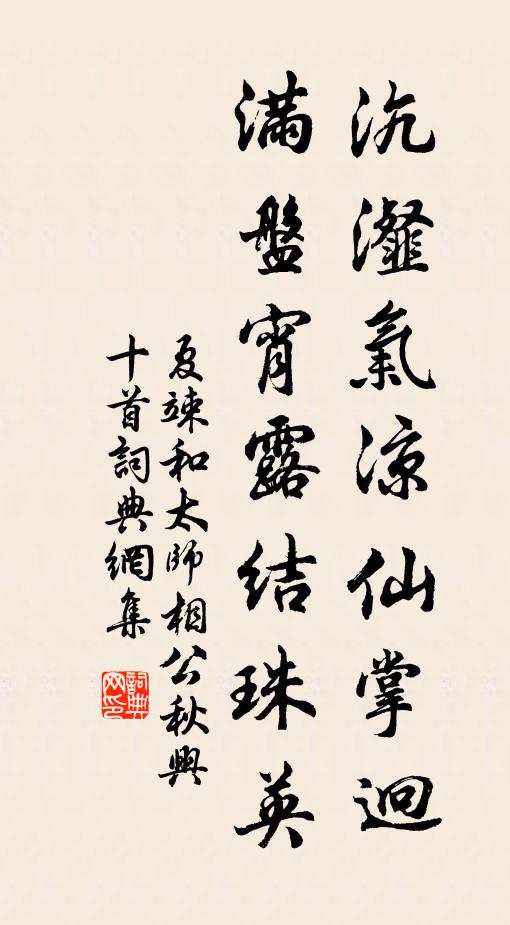 沆瀣氣涼仙掌迥
滿盤宵露結珠英
夏竦和太師相公秋興
十首詞典網集
詞典网印